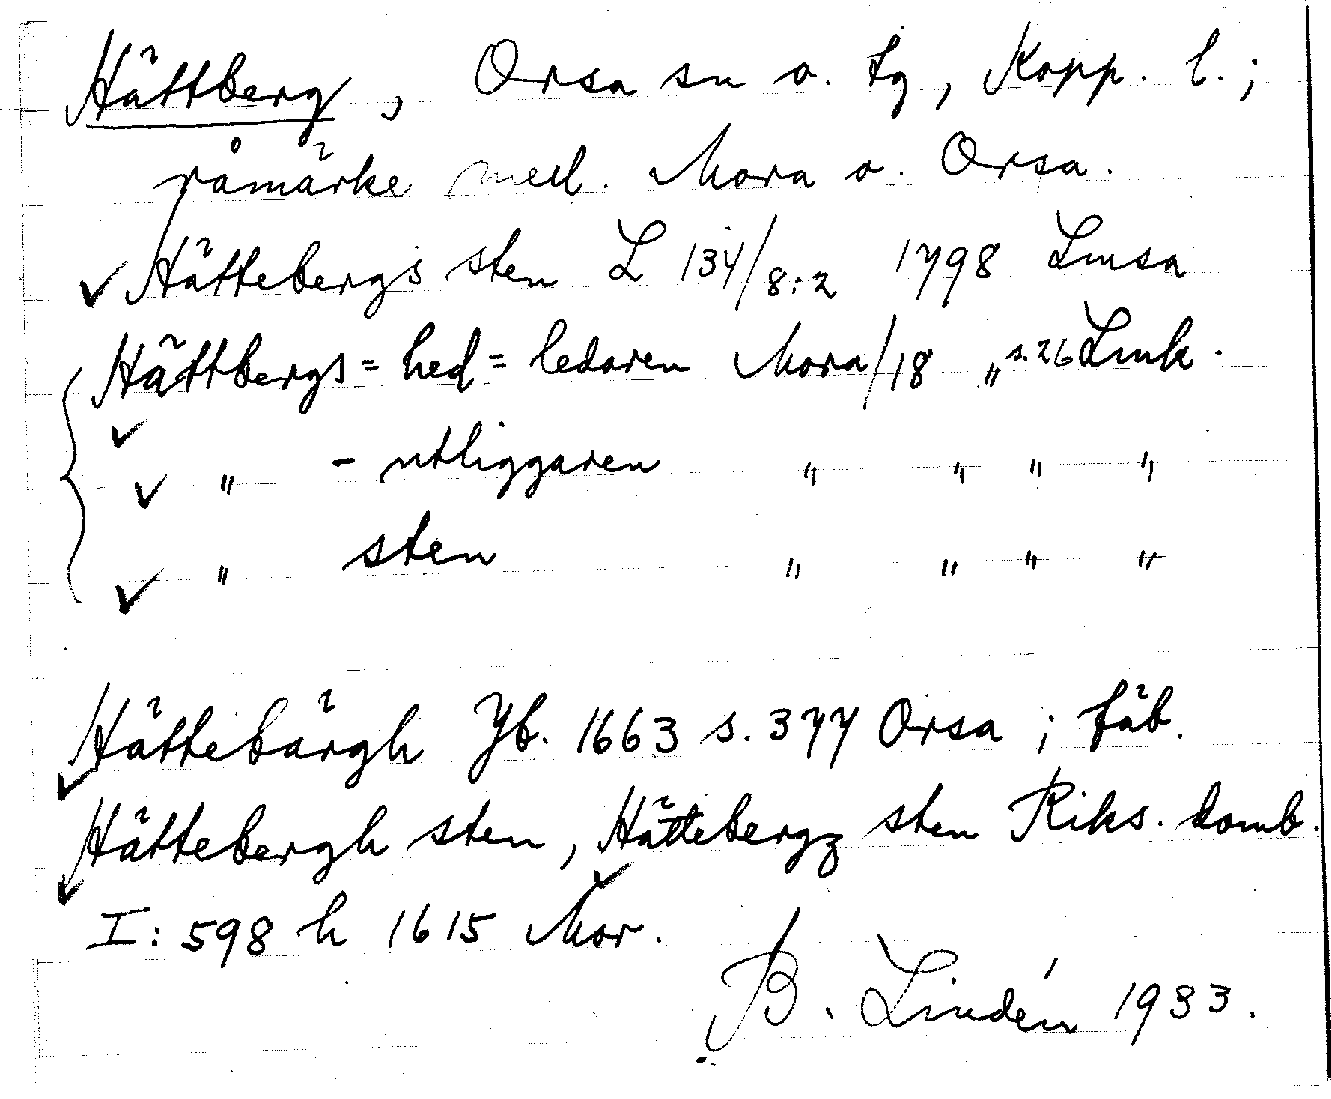 Hättberg, Orsa sn o. tg, Kopp. l.;
råmärke mell. Mora o. Orsa.
Hättebergs sten L 134/8:2 1798 Limsa
Hättbergs=hed=ledaren Mora/18 „ s. 26 Link.
„ - utliggaren „ „ „ „
„ sten „ „ „ „
Hättebärgh Jb. 1663 s. 377 Orsa; fäb.
Hättebergh sten, Hättebergz sten Riks. domb.
I: 598 h 1615 Mor.
B. Lindén 1933.